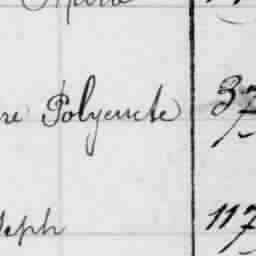 re Polyeucte 37
seph 117